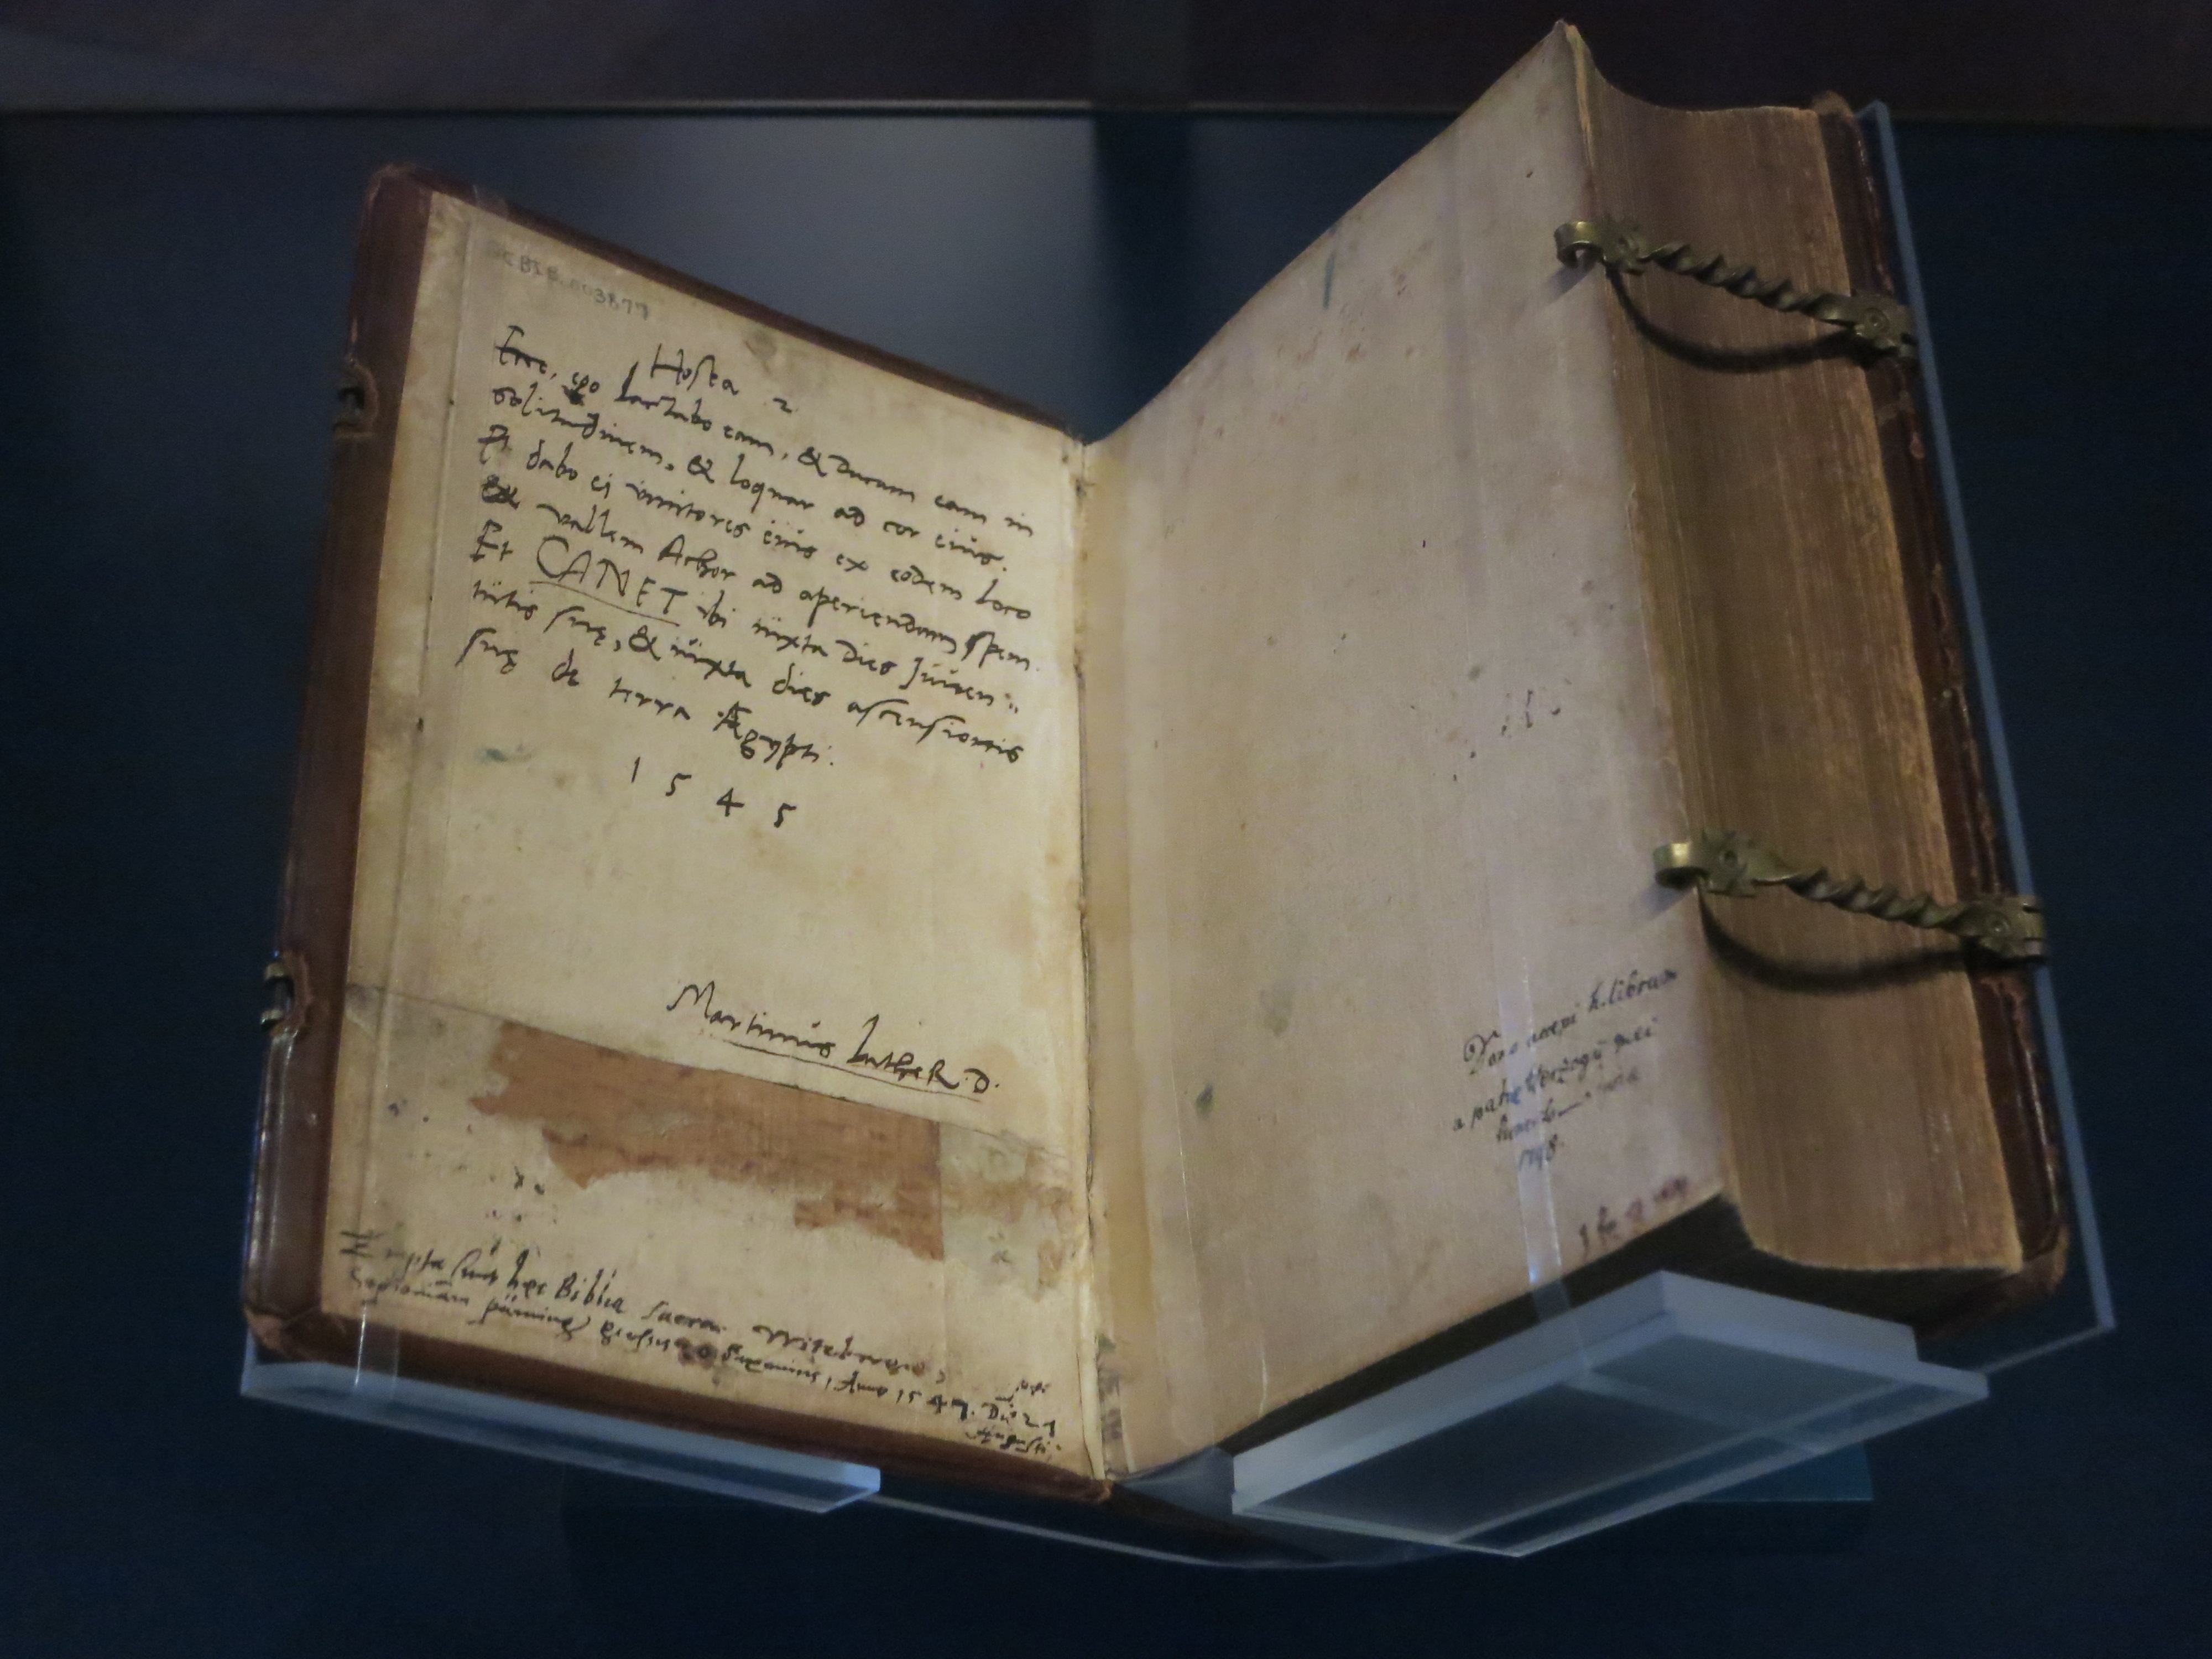 Hosea 2
Ecce, ego lactabo eam, & ducam eam in
solitudinem, & loquar ad cor eius.
Et dabo ei vinitores eius ex eodem loco
vallem Achor ad aperiendam spem.
Et CANET ibi iuxta dies Juuen
tutis suę, & iuxta dies ascensionis
suę de terra Ægypti.
1545
Martinus LutheR. D.
Empta sunt hęc Biblia sacra Witebergę,
Anno 1547. Die 21
Augusti
Dono accepi h. librum
a patre mei